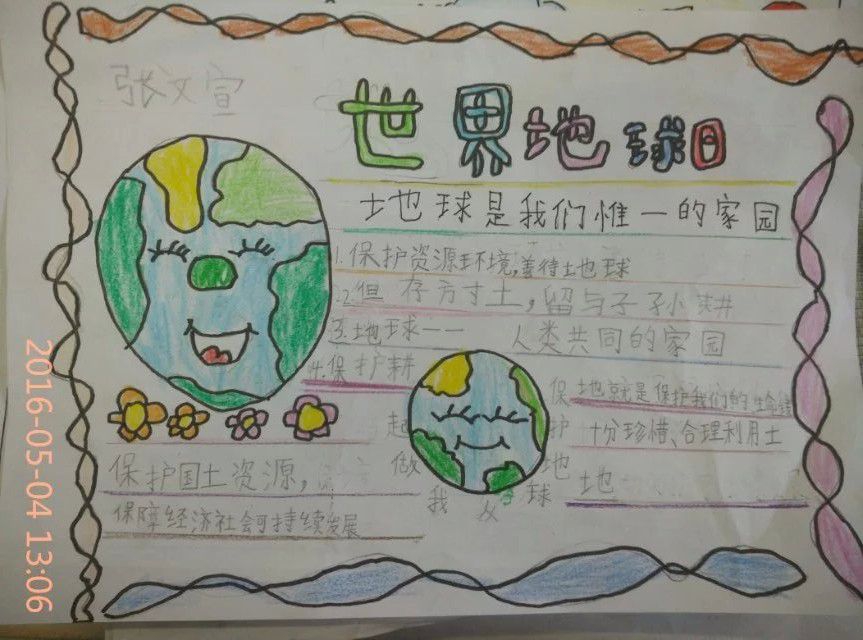 张文宣
世界地球日
土地球是我们惟一的家园
1.保护资源环境,善待土也球
2.但存方寸土,留与子孙耕
3.土地球一一 人类共同的家园
4.保护耕地就是保护我们的生命线
十分珍惜、合理利用土地
保护地球
起做我
保护国土资源,
保障经济社会可持续发展
2016-05-04 13:06